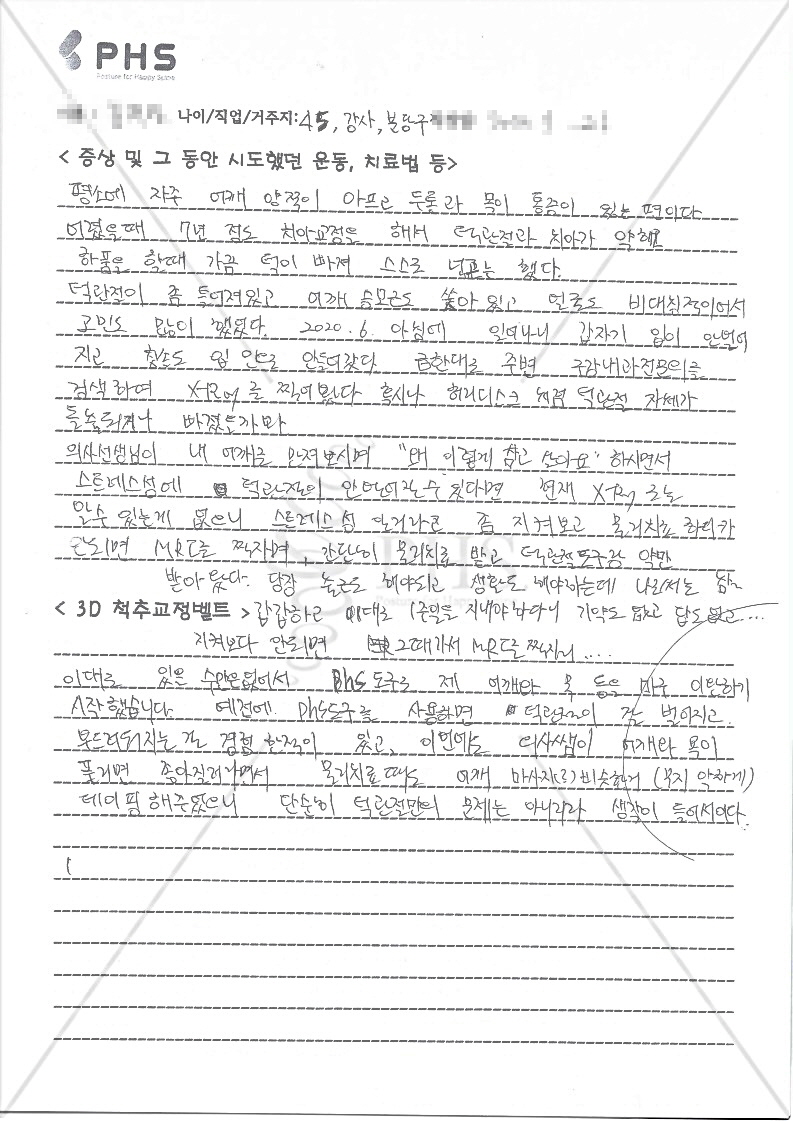 PHS
Posture for Happy Spine
나이/직업/거주지: 45, 강사, 분당구
< 증상 및 그 동안 시도했던 운동, 치료법 등>
평소에 자주 어깨 양쪽이 아프고 두통과 목이 통증이 있는 편이다
어렸을때 7년 정도 치아교정을 해서 턱관절과 치아가 약해
하품을 할때 가끔 턱이 빠져 스스로 넣고는 했다.
턱관절이 좀 틀어져있고 어깨 승모근도 솟아 있고 얼굴도 비대칭적이어서
고민도 많이 했었다. 2020.6. 아침에 일어나니 갑자기 입이 안벌어
지고 칫솔도 입 안으로 안들어갔다 급한대로 주변 구강내과전문의를
검색하여 X-Ray를 찍어봤다 혹시나 허리디스크 처럼 턱관절 자체가
돌출되거나 빠졌을까봐
의사선생님이 내 어깨를 만져보시며 "왜 이렇게 참고 산아요" 하시면서
스트레스성에 턱관절이 안벌어질수 있다면 현재 X-Ray로는
알수 있는게 없으니 스트레스성 일거라고 좀 지켜보고 물리치료 하다가
안되면 MRI를 찍자며, 간단히 물리치료 받고 턱관절도구랑 약만
받아왔다. 당장 출근도 해야되고 생활도 해야하는데 나로서는 넘
< 3D 척추교정벨트 > 갑갑하고 이대로 1주일을 지내야 한다니 기약도 없고 답도 없고...
지켜보다 안되면 그때가서 MRI를 찍자니 ....
이대로 있을 수만은 없어서 phs도구로 제 어깨와 목 등을 마구 이완하기
시작했습니다. 예전에 phs도구를 사용하면 턱관절이 잘 벌어지고
부드러워지는걸 경험 한적이 있고, 이번에도 의사쌤이 어깨와 목이
풀리면 좋아질거라면서 물리치료때도 어깨 마사지(?) 비슷한거 (무지 약하게)
테이핑해주었으니 단순히 턱관절만의 문제는 아니리라 생각이 들어서이다.